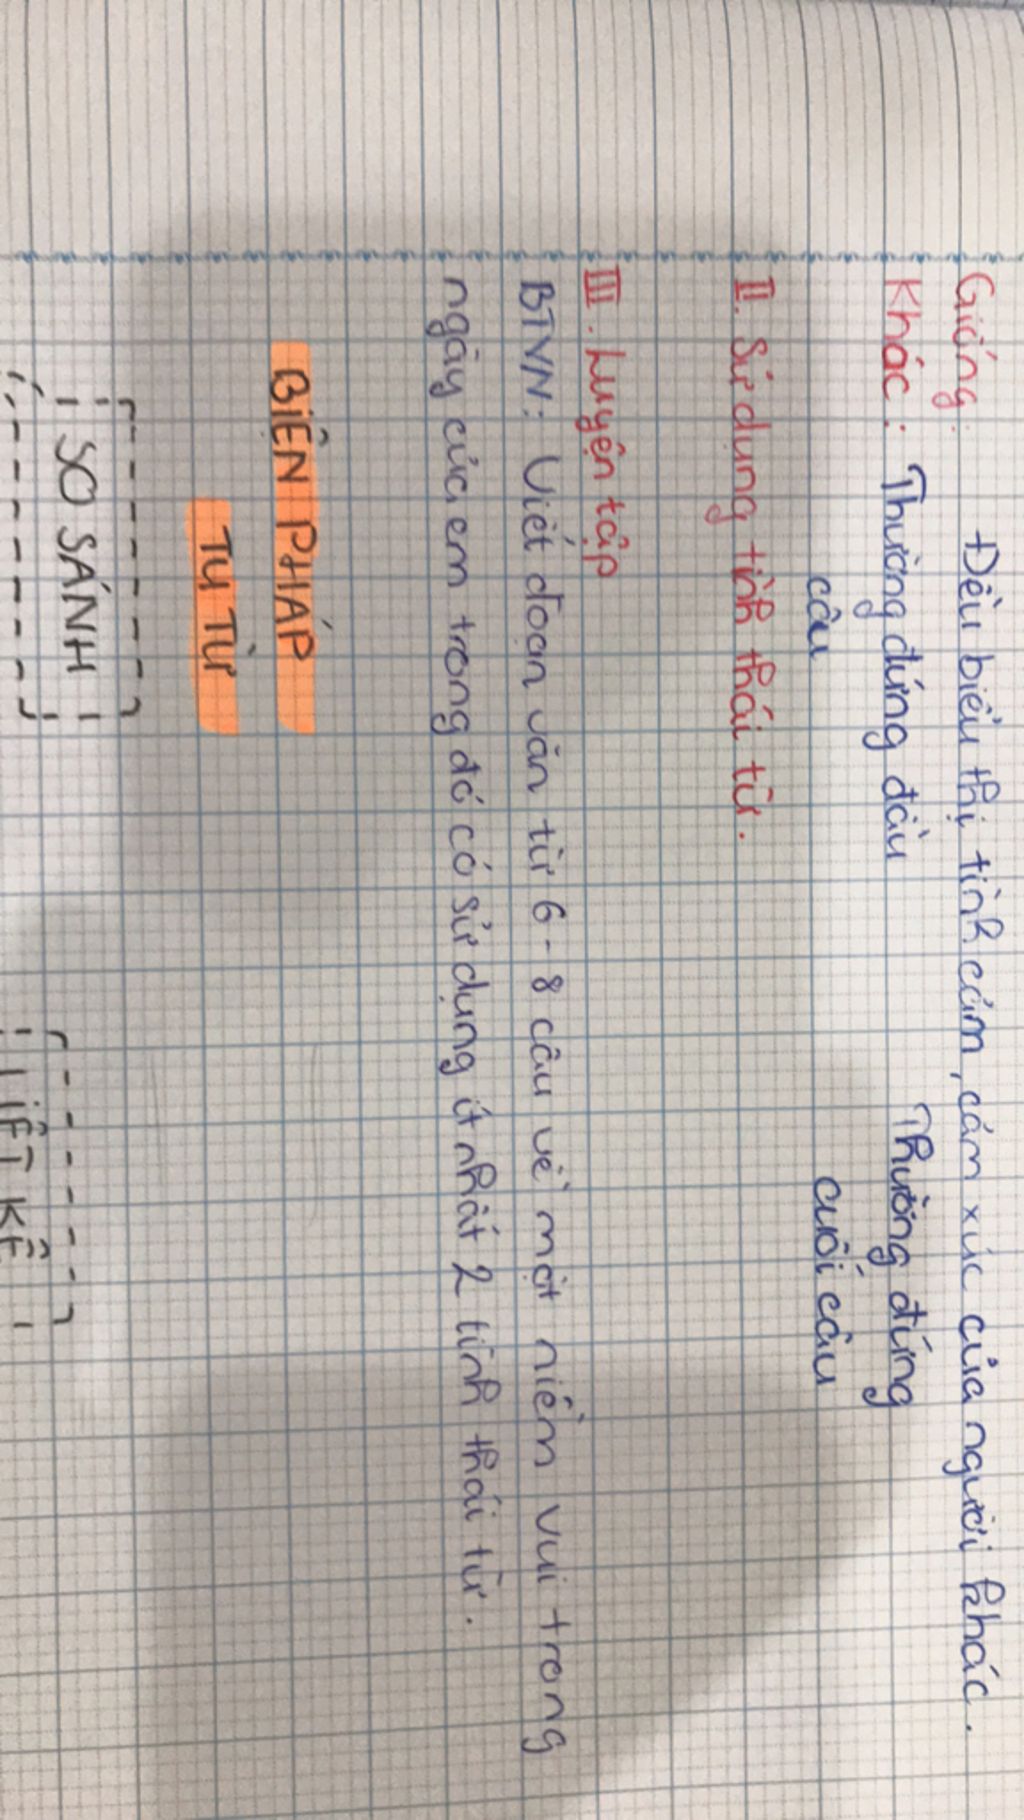 Giống: Đều biểu thị tình cảm, cảm xúc của người khác.
Khác: Thường đứng đầu Thường đứng
câu cuối câu
II. Sử dụng tình thái từ.
III. Luyện tập
BTVN: Viết đoạn văn từ 6-8 câu về một niềm vui trong
ngày của em trong đó có sử dụng ít nhất 2 tình thái từ.
BIỆN PHÁP
TU TỪ
SO SÁNH
LIỆT KÊ